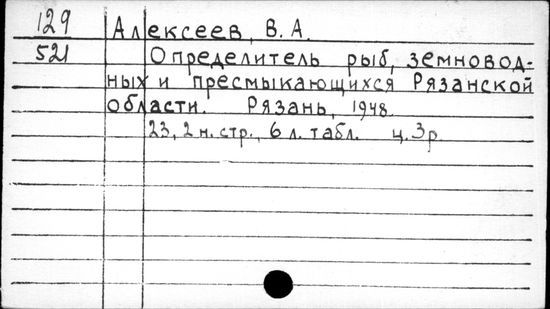 129 Алексеев, В.А.
521 Определитель рыб, земновод-
ных и пресмыкающихся Рязанской
области. Рязань, 1948.
23, 2 н. стр., 6 л. табл. ц. 3 р.